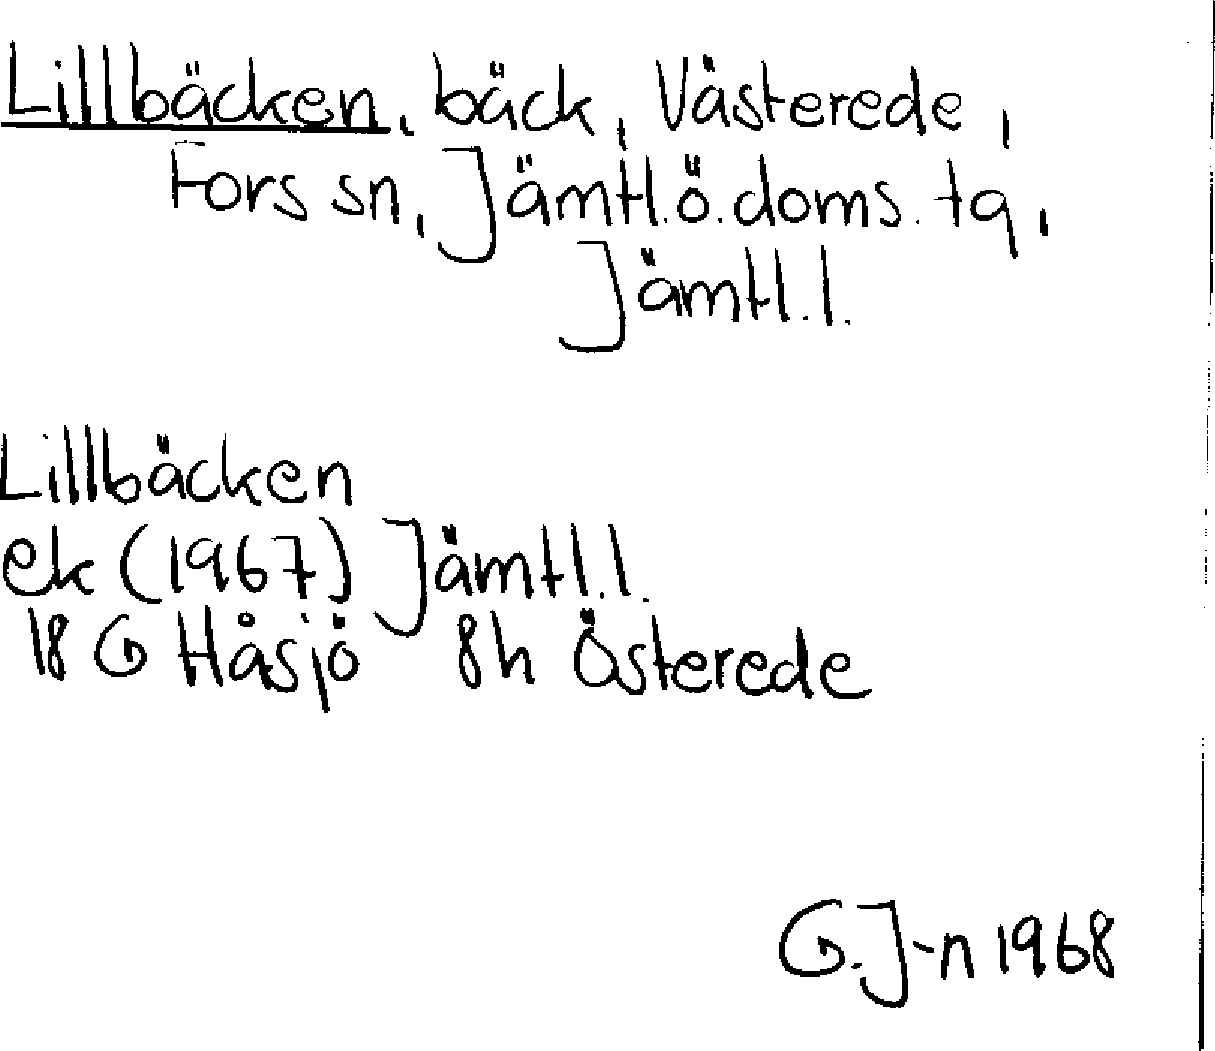 Lillbäcken, bäck, Västerede,
Fors sn, Jämtl.ö.doms.tg,
Jämtl.l.
Lillbäcken
ek (1967) Jämtl.l.
18 G Håsjö 8h Österede
G.J-n 1968